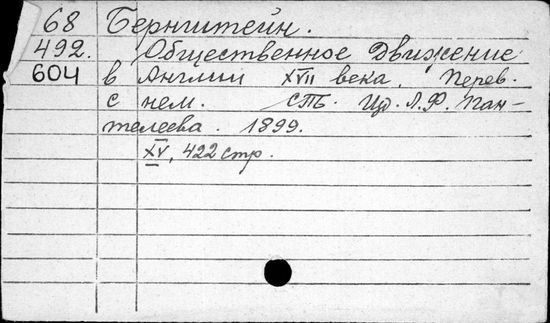 68 Бернштейн.
492. Общественное Движение
604 в Англии XVII века. Перев.
с нем. СПБ. Изд. Л.Ф. Пан-
телеева. 1899.
XV, 422 стр.